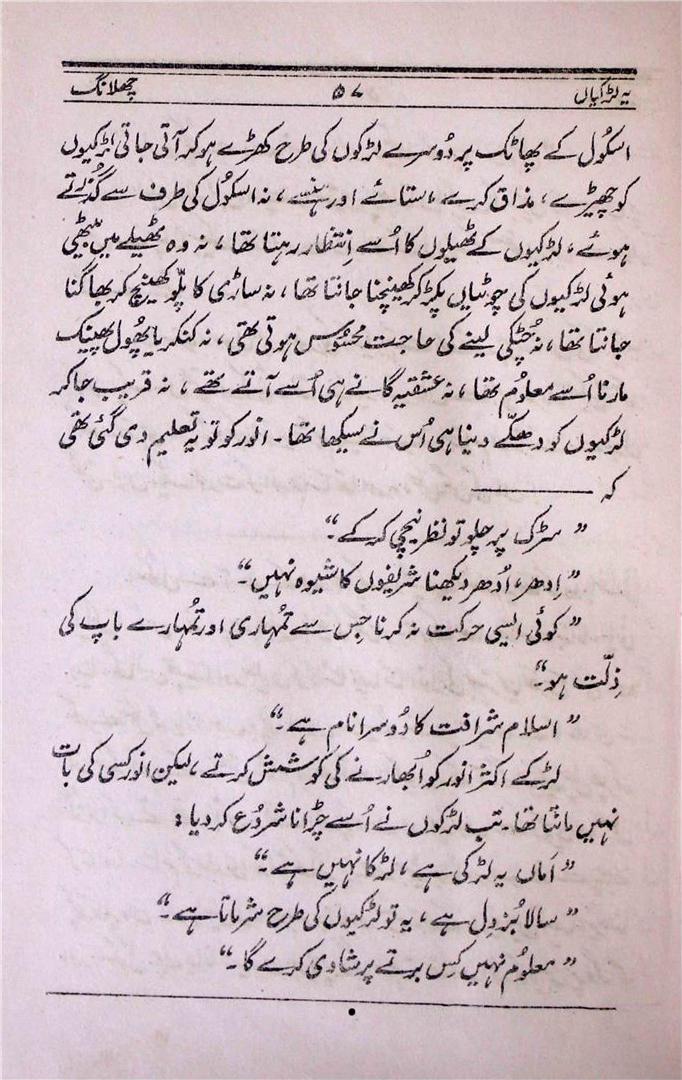 یہ لڑکیاں ۵۷ چھلانگ
اسکُول کے پھاٹک پر دُوسرے لڑکوں کی طرح کھڑے ہوکر آتی جاتی لڑکیوں
کو چھیڑے، مذاق کرے، ستائے اور ہنسے، نہ اسکُول کی طرف سے گُذرتے
ہوئے، لڑکیوں کے ٹھیلوں کا اُسے اِنتظار رہتا تھا، نہ وہ ٹھیلے میں بیٹھی
ہوئی لڑکیوں کی چوٹیاں پکڑ کر کھینچنا جانتا تھا، نہ ساڑی کا پلّو کھینچ کر بھاگنا
جانتا تھا، نہ چُٹکی لینے کی حاجت محسُوس ہوتی تھی، نہ کنکر یا پھُول پھینک
مارنا اُسے معلُوم تھا، نہ عشقیہ گانے ہی اُسے آتے تھے، نہ قریب جاکر
لڑکیوں کو دھکّے دینا ہی اُس نے سیکھا تھا۔ انور کو تو یہ تعلیم دی گئی تھی
کہ ———
”سڑک پر چلو تو نظر نیچی کرکے۔“
”اِدھر، اُدھر دیکھنا شریفوں کا شیوہ نہیں۔“
”کوئی ایسی حرکت نہ کرنا جِس سے تمُہاری اور تمُہارے باپ کی
ذِلّت ہو۔“
”اسلام شرافت کا دُوسرا نام ہے۔“
لڑکے اکثر انور کو اُبھارنے کی کوشش کرتے، لیکن انور کسی کی بات
نہیں مانتا تھا۔ تب لڑکوں نے اُسے چڑانا شروُع کر دیا:
”اَماں یہ لڑکی ہے، لڑکا نہیں ہے۔“
”سالا بُزدِل ہے، یہ تو لڑکیوں کی طرح شرماتا ہے۔“
”معلوُم نہیں کِس برتے پر شادی کرے گا۔“